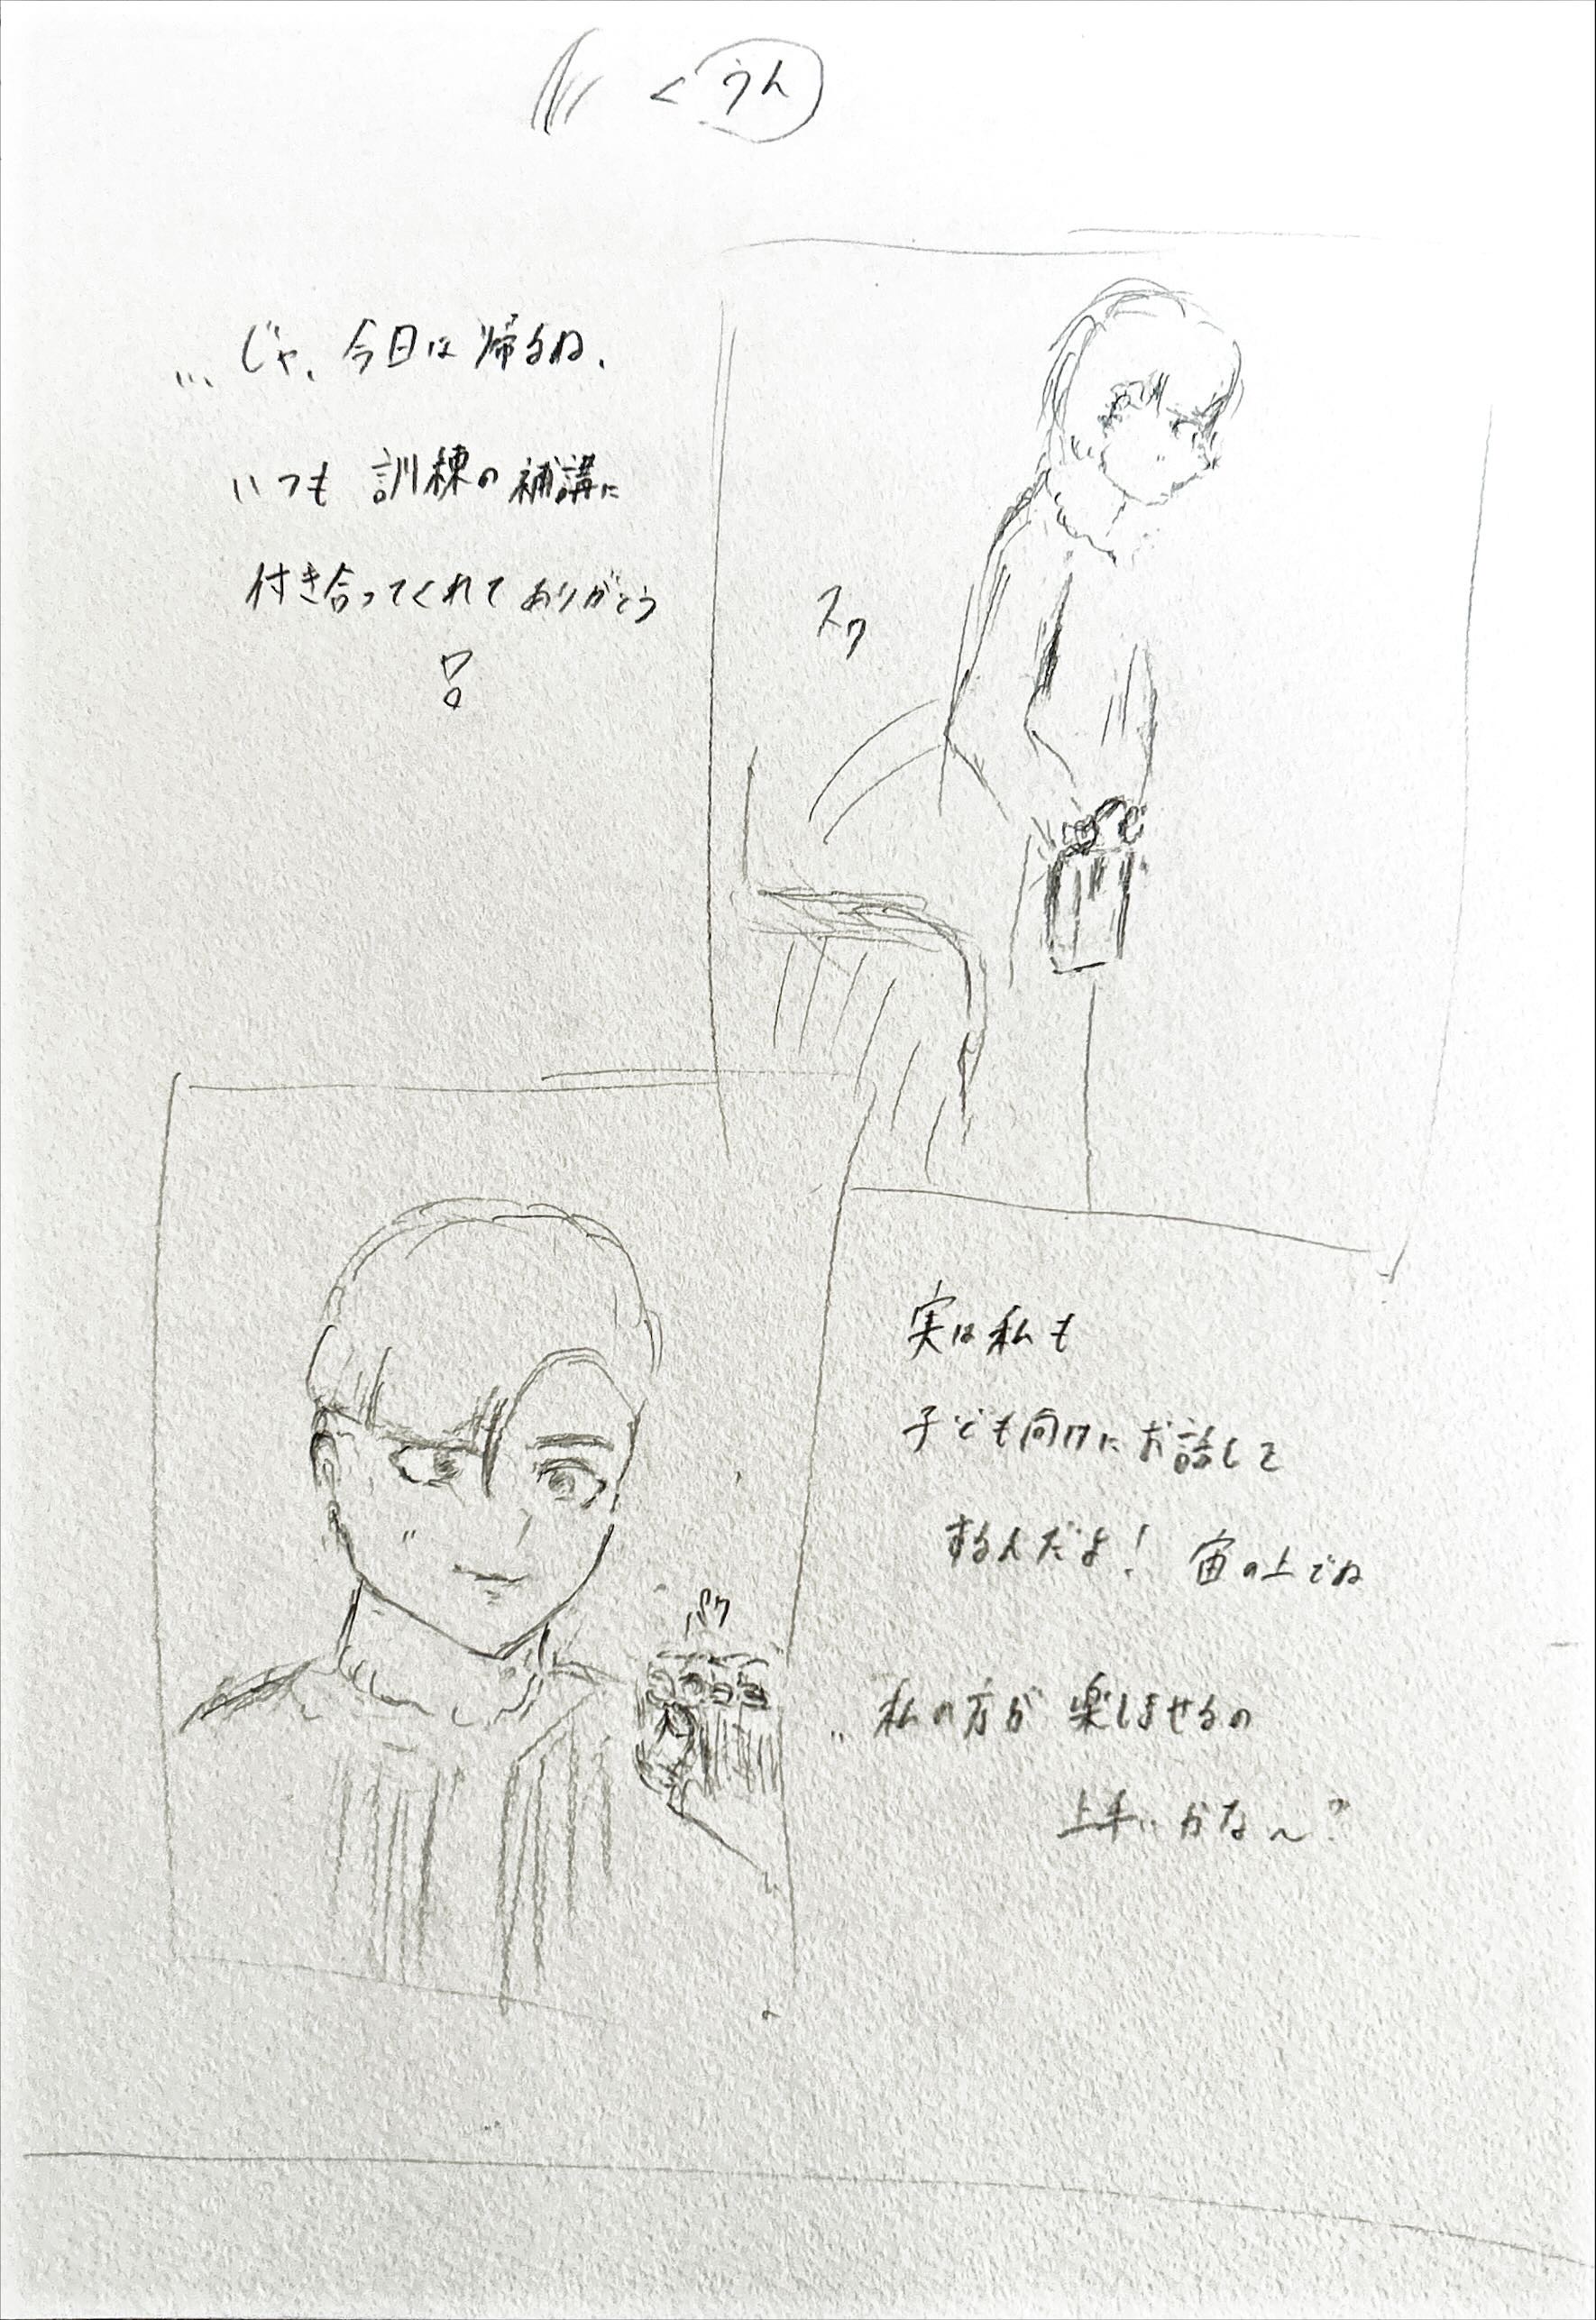 うん
…じゃ、今日は帰るね、
いつも訓練の補講に
付き合ってくれてありがとう
!
スッ
実は私も
子ども向けにお話して
するんだよ！ 宙の上でね
パッ
‥私の方が楽しませるの
上手いかな〜？